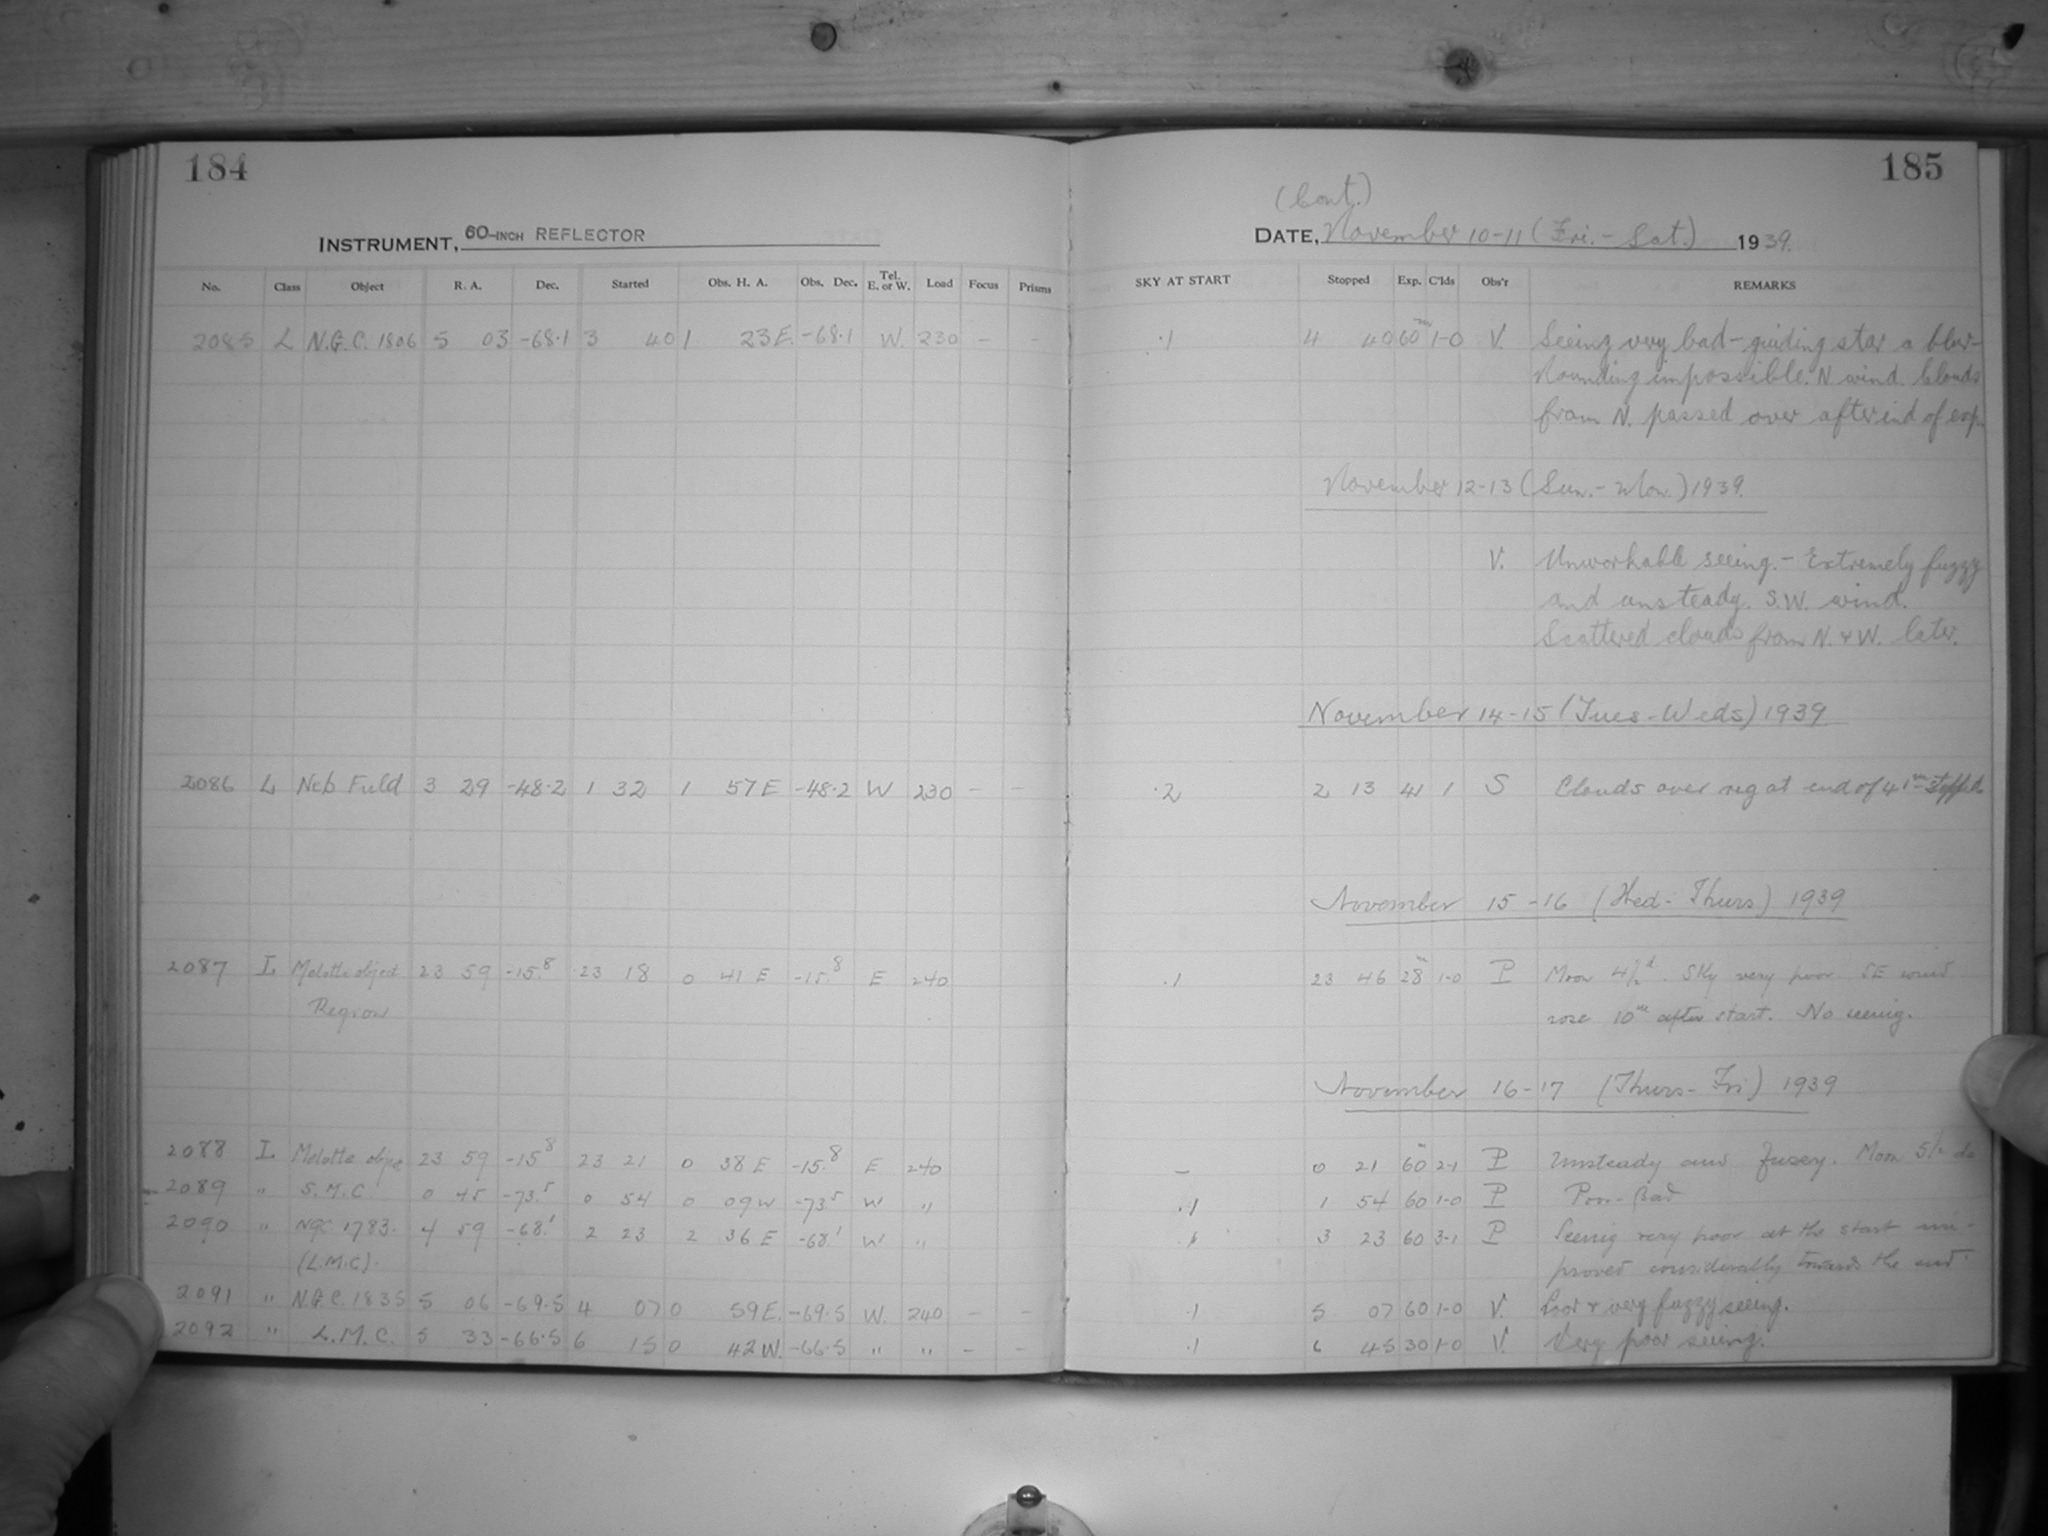 184
INSTRUMENT, 60-INCH REFLECTOR
No. Class Object R. A. Dec. Started Obs. H. A. Obs. Dec. Tel. E. or W. Load Focus Prisms
2085 L N.G.C. 1806 5 03 -68.1 3 40 1 23 E. -68.1 W. 230 - -
2086 L Neb Field 3 29 -48.2 1 32 1 57 E -48.2 W 230 - -
2087 L Melotte object 23 59 -15.8 23 18 0 41 E -15.8 E 240
Region
2088 L Melotte object 23 59 -15.8 23 21 0 38 E -15.8 E 240
2089 " S.M.C. 0 45 -73.5 0 54 0 09 W -73.5 W "
2090 " NGC 1783. 4 59 -68.1 2 23 2 36 E -68.1 W "
(L.M.C).
2091 " N.G.C. 1835 5 06 -69.5 4 07 0 59 E. -69.5 W. 240 - -
2092 " L.M.C. 5 33 -66.5 6 15 0 42 W. -66.5 " " - -
185
(Cont.)
DATE, November 10-11 (Fri. - Sat.) 1939.
SKY AT START Stopped Exp. C'lds Obs'r REMARKS
.1 4 40 60m 1-0 V. Seeing very bad - guiding star a blur -
Rounding impossible. N wind. Clouds
from N. passed over after end of exp.
November 12-13 (Sun. - Mon.) 1939.
V. Unworkable seeing. - Extremely fuzzy
and unsteady. S.W. wind.
Scattered clouds from N. & W. later.
November 14-15 (Tues - Weds) 1939
.2 2 13 41 1 S Clouds over reg at end of 41m
November 15-16 (Wed - Thurs) 1939
.1 23 46 28m 1-0 P Moon 4½d. Sky very poor SE wind
rose 10m after start. No seeing.
November 16-17 (Thurs - Fri) 1939
- 0 21 60m 2-1 P Unsteady and fuzzy. Moon 5½
.1 1 54 60 1-0 P Poor - Bad
.1 3 23 60 3-1 P Seeing very poor at the start im-
proved considerably towards the end.
.1 5 07 60 1-0 V. Poor & very fuzzy seeing.
.1 6 45 30 1-0 V. Very poor seeing.